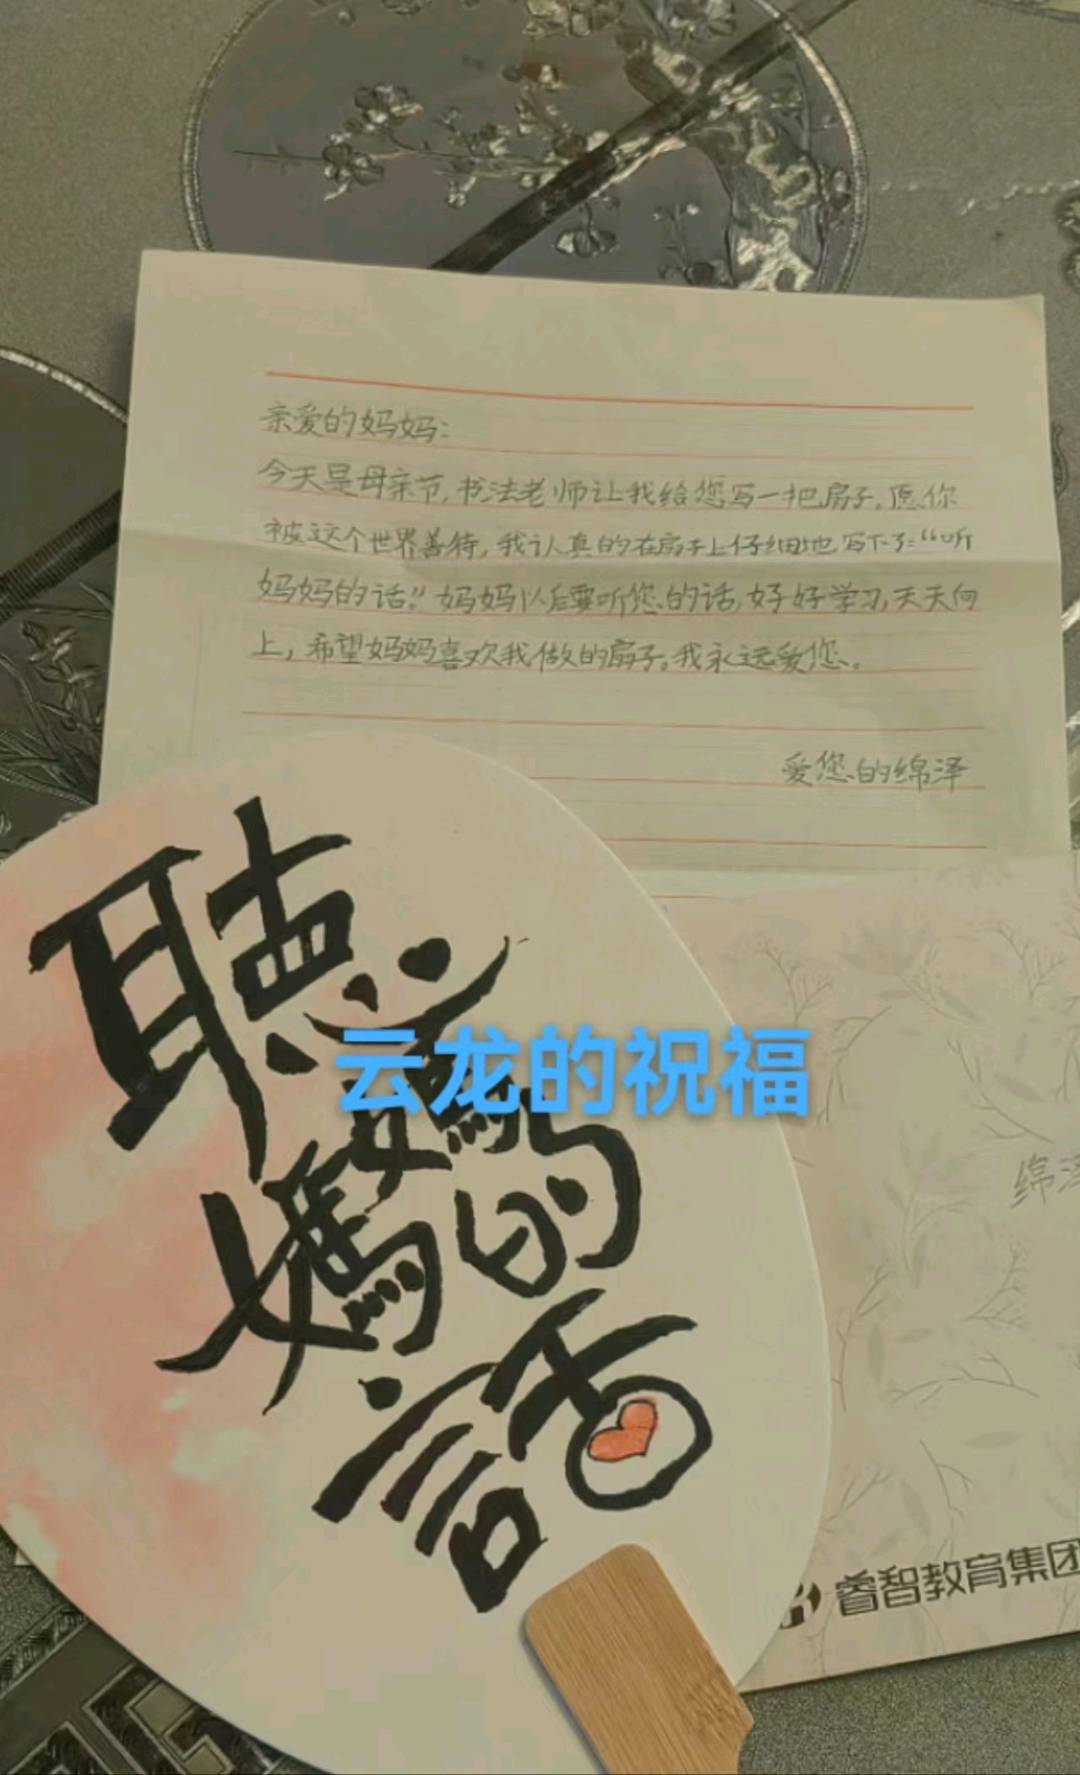 亲爱的妈妈：
今天是母亲节，书法老师让我给您写一把扇子。愿你
被这个世界善待，我认真的在扇子上仔细地写下了：“听
妈妈的话”。妈妈以后要听您的话，好好学习，天天向
上，希望妈妈喜欢我做的扇子。我永远爱您。
爱您的绵泽
聽
媽媽的
話
云龙的祝福
绵泽
睿智教育集团